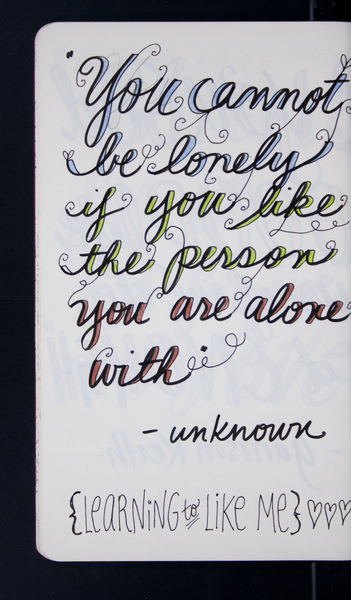 "You cannot
be lonely
if you like
the person
you are alone
with"
- unknown
{LEARNiNG to LiKE ME} ♡♡♡